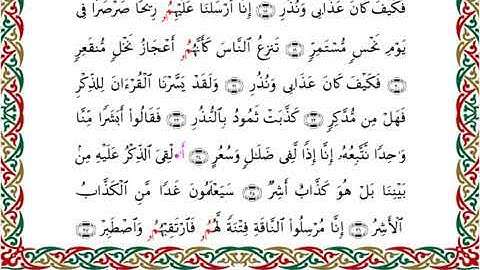 فَكَيْفَ كَانَ عَذَابِى وَنُذُرِ إِنَّا أَرْسَلْنَا عَلَيْهِمُۥ رِيحًا صَرْصَرًا فِى
يَوْمِ نَحْسٍ مُّسْتَمِرٍّ تَنزِعُ النَّاسَ كَأَنَّهُمُۥ أَعْجَازُ نَخْلٍ مُّنقَعِرٍ
فَكَيْفَ كَانَ عَذَابِى وَنُذُرِ وَلَقَدْ يَسَّرْنَا الْقُرْءَانَ لِلذِّكْرِ
فَهَلْ مِن مُّدَّكِرٍ كَذَّبَتْ ثَمُودُ بِالنُّذُرِ فَقَالُوا أَبَشَرًا مِّنَّا
وَاحِدًا نَّتَّبِعُهُۥ إِنَّا إِذًا لَّفِى ضَلَٰلٍ وَسُعُرٍ أَ•لْقِىَ الذِّكْرُ عَلَيْهِ مِنۢ
بَيْنِنَا بَلْ هُوَ كَذَّابٌ أَشِرٌ سَيَعْلَمُونَ غَدًا مَّنِ الْكَذَّابُ
الْأَشِرُ إِنَّا مُرْسِلُوا النَّاقَةِ فِتْنَةً لَّهُمُۥ فَارْتَقِبْهُمُۥ وَاصْطَبِرْ